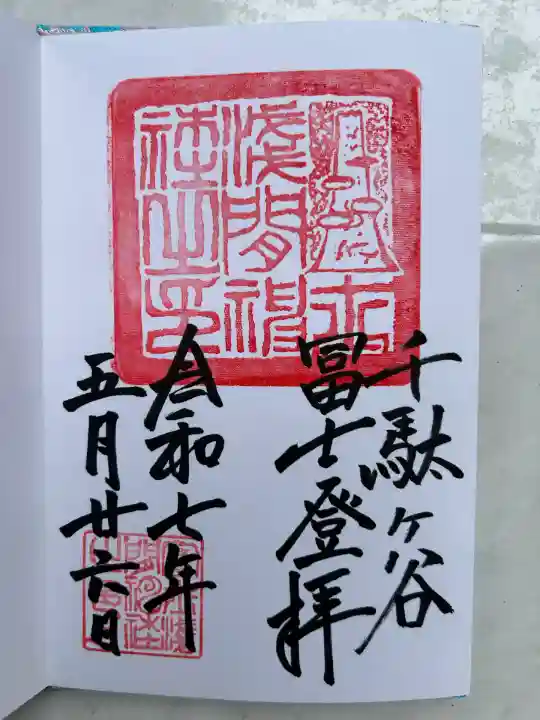 浅間神
社之印
千駄ヶ谷
冨士登拝
令和七年
五月廿六日